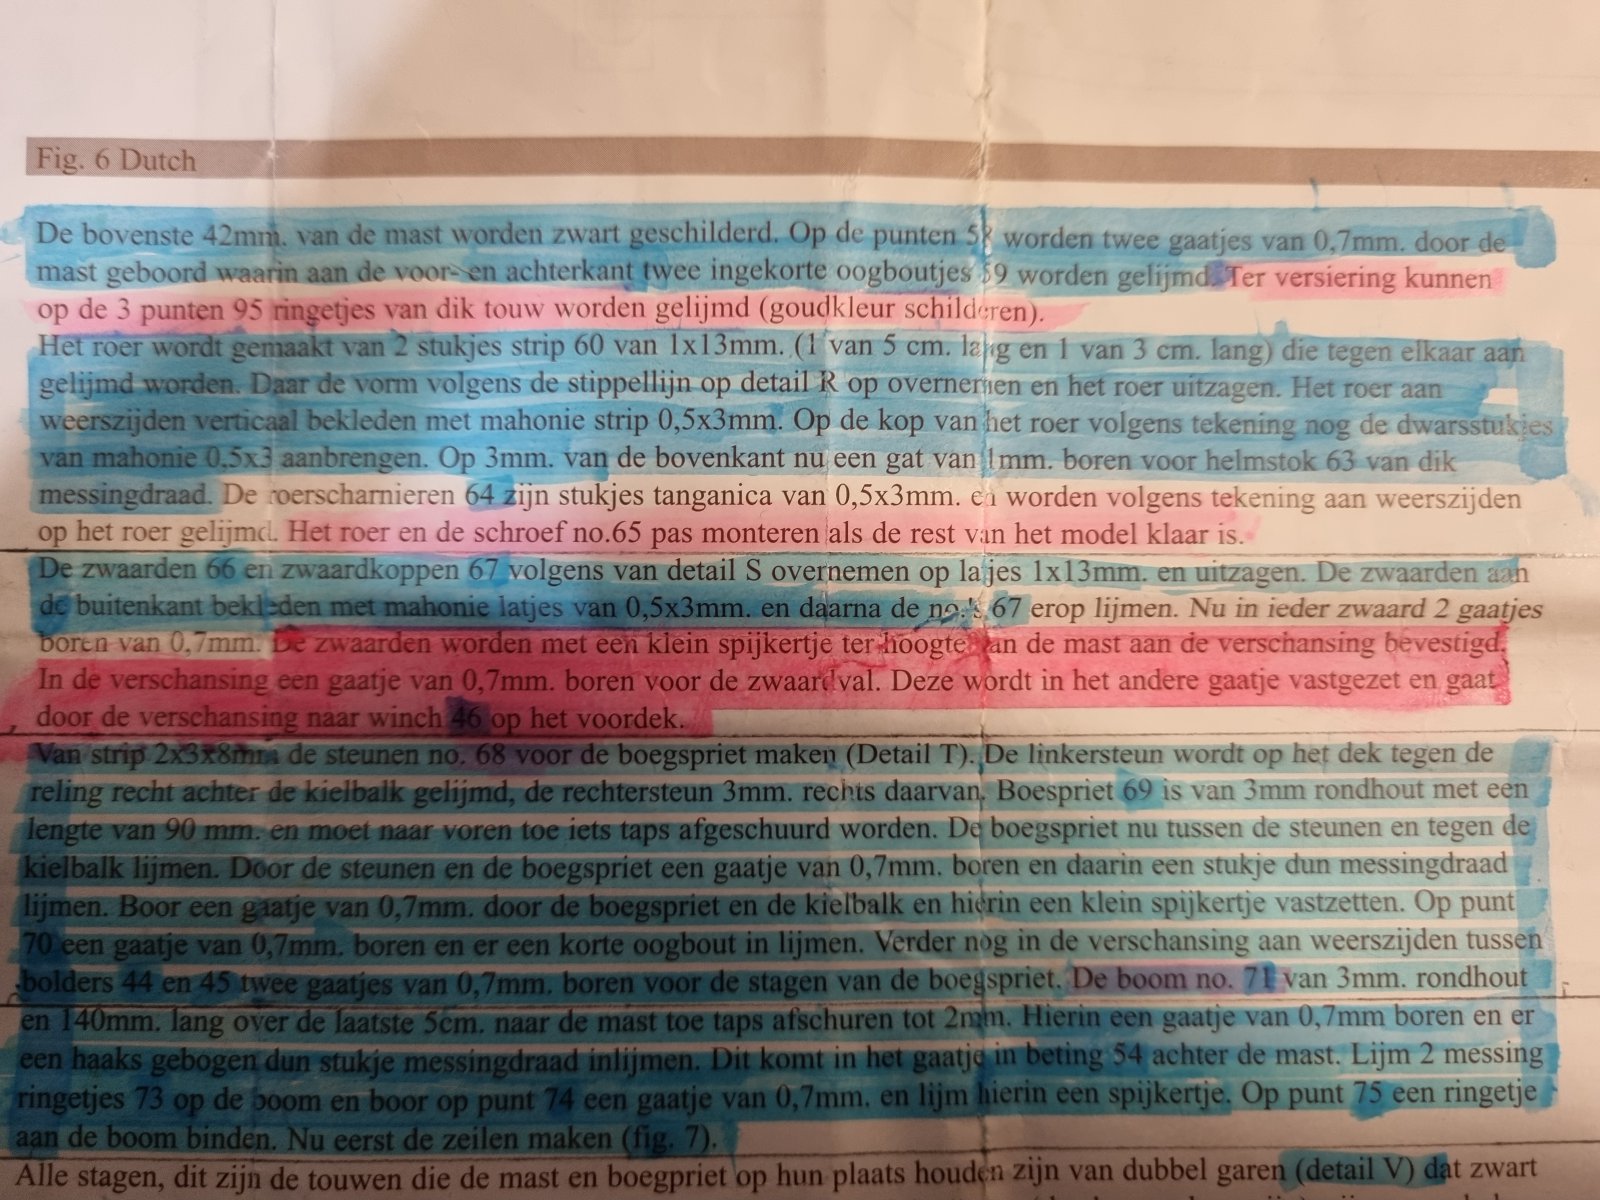 Fig. 6 Dutch
De bovenste 42mm. van de mast worden zwart geschilderd. Op de punten 58 worden twee gaatjes van 0,7mm. door de
mast geboord waarin aan de voor- en achterkant twee ingekorte oogboutjes 59 worden gelijmd. Ter versiering kunnen
op de 3 punten 95 ringetjes van dik touw worden gelijmd (goudkleur schilderen).
Het roer wordt gemaakt van 2 stukjes strip 60 van 1x13mm. (1 van 5 cm. lang en 1 van 3 cm. lang) die tegen elkaar aan
gelijmd worden. Daar de vorm volgens de stippellijn op detail R op overnemen en het roer uitzagen. Het roer aan
weerszijden verticaal bekleden met mahonie strip 0,5x3mm. Op de kop van het roer volgens tekening nog de dwarsstukjes
van mahonie 0,5x3 aanbrengen. Op 3mm. van de bovenkant nu een gat van 1mm. boren voor helmstok 63 van dik
messingdraad. De roerscharnieren 64 zijn stukjes tanganica van 0,5x3mm. en worden volgens tekening aan weerszijden
op het roer gelijmd. Het roer en de schroef no.65 pas monteren als de rest van het model klaar is.
De zwaarden 66 en zwaardkoppen 67 volgens van detail S overnemen op latjes 1x13mm. en uitzagen. De zwaarden aan
de buitenkant bekleden met mahonie latjes van 0,5x3mm. en daarna de no.'s 67 erop lijmen. Nu in ieder zwaard 2 gaatjes
boren van 0,7mm. De zwaarden worden met een klein spijkertje ter hoogte van de mast aan de verschansing bevestigd.
In de verschansing een gaatje van 0,7mm. boren voor de zwaardval. Deze wordt in het andere gaatje vastgezet en gaat
door de verschansing naar winch 46 op het voordek.
Van strip 2x3x8mm. de steunen no. 68 voor de boegspriet maken (Detail T). De linkersteun wordt op het dek tegen de
reling recht achter de kielbalk gelijmd, de rechtersteun 3mm. rechts daarvan. Boespriet 69 is van 3mm rondhout met een
lengte van 90 mm. en moet naar voren toe iets taps afgeschuurd worden. De boegspriet nu tussen de steunen en tegen de
kielbalk lijmen. Door de steunen en de boegspriet een gaatje van 0,7mm. boren en daarin een stukje dun messingdraad
lijmen. Boor een gaatje van 0,7mm. door de boegspriet en de kielbalk en hierin een klein spijkertje vastzetten. Op punt
70 een gaatje van 0,7mm. boren en er een korte oogbout in lijmen. Verder nog in de verschansing aan weerszijden tussen
bolders 44 en 45 twee gaatjes van 0,7mm. boren voor de stagen van de boegspriet. De boom no. 71 van 3mm. rondhout
en 140mm. lang over de laatste 5cm. naar de mast toe taps afschuren tot 2mm. Hierin een gaatje van 0,7mm boren en er
een haaks gebogen dun stukje messingdraad inlijmen. Dit komt in het gaatje in beting 54 achter de mast. Lijm 2 messing
ringetjes 73 op de boom en boor op punt 74 een gaatje van 0,7mm. en lijm hierin een spijkertje. Op punt 75 een ringetje
aan de boom binden. Nu eerst de zeilen maken (fig. 7).
Alle stagen, dit zijn de touwen die de mast en boegpriet op hun plaats houden zijn van dubbel garen (detail V) dat zwart